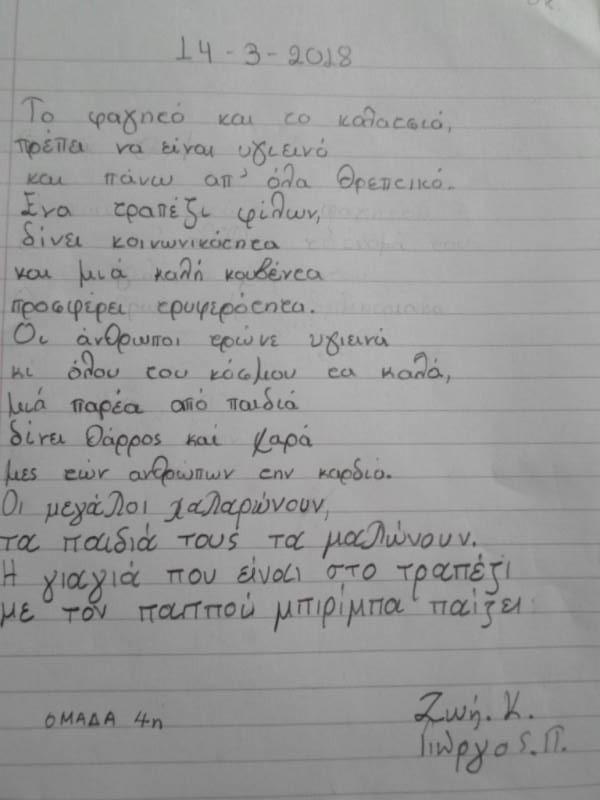 14-3-2018
Το φαγητό και το κολατσιό,
πρέπει να είναι υγιεινό
και πάνω απ' όλα θρεπτικό.
Ένα τραπέζι φίλων,
δίνει κοινωνικότητα
και μιά καλή κουβέντα
προσφέρει τρυφερότητα.
Οι άνθρωποι τρώνε υγιεινά
κι όλου του κόσμου τα καλά,
μιά παρέα από παιδιά
δίνει θάρρος και χαρά
μες τών ανθρώπων την καρδιά.
Οι μεγάλοι χαλαρώνουν,
τα παιδιά τους τα μαλώνουν.
Η γιαγιά που είναι στο τραπέζι
με τον παππού μπιρίμπα παίζει
ΟΜΑΔΑ 4η
Ζωή. Κ.
Γιώργος. Π.